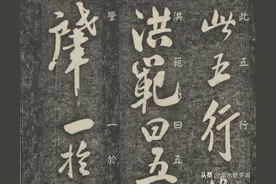 此五行
此五行
洪範曰五
洪範曰五
肇一於
肇一於